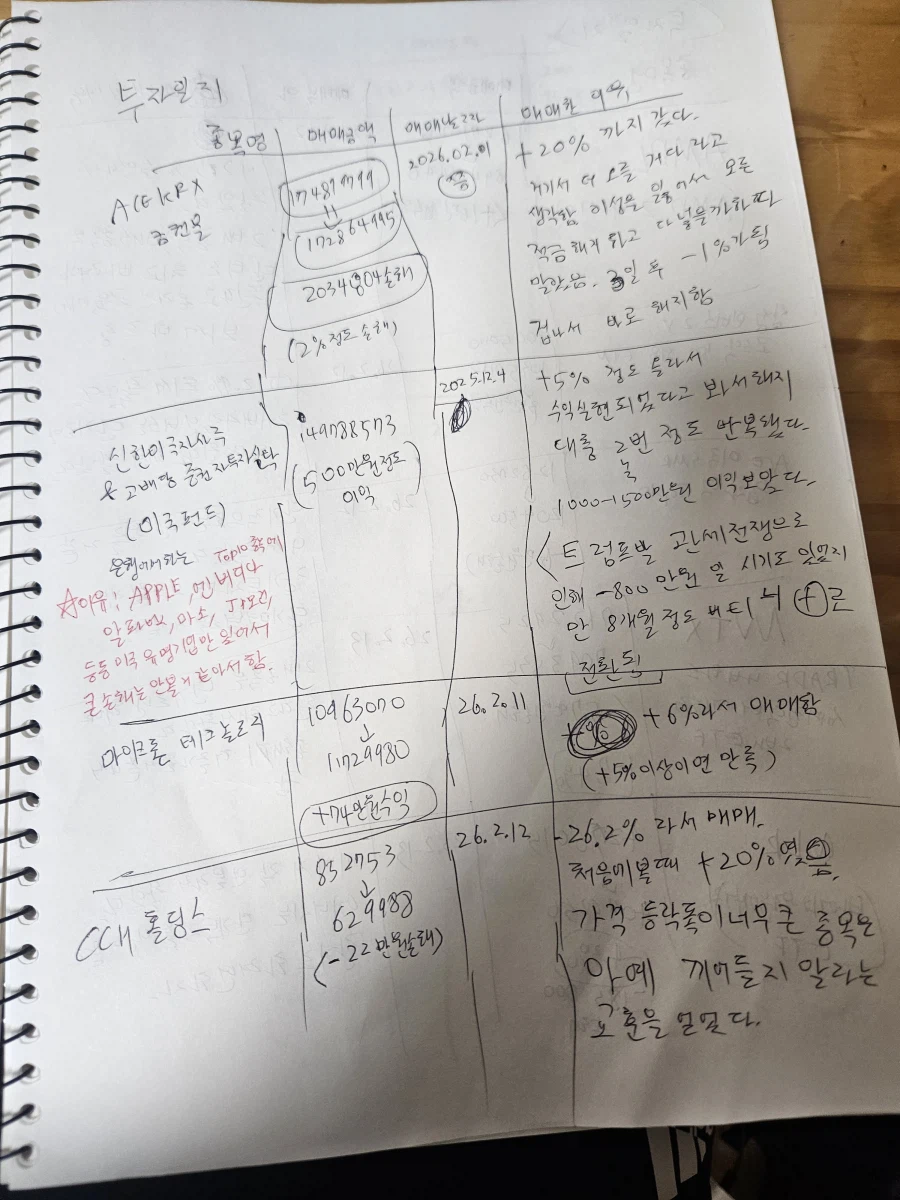 투자일지
종목명 매매금액 매매날짜 매매한 이유
ACE KRX
금현물
174899799
↓
172864995
2034804손해
(2%정도 손해)
2026.02.
+20% 까지 갔다.
거기서 더 오를 거다 라고
생각함 이성을 잃어서 모든
적금 해지 하고 다 넣을까 하다
말았음. 3일 후 -1%가 됨
겁나서 바로 해지함
신한미국지사국
& 고배당 증권자투자신탁
(미국펀드)
149788573
(500만원정도
이익)
2025.12.4
+5% 정도 올라서
수익실현되었다고 봐서 해지
대충 2번 정도 반복했다.
1000-1500만원 이익보았다.
<트럼프발 관세전쟁으로
인해 -800만원 일 시기도 있었지
만 8개월 정도 버티니 +로
전환됨
은행에서하는 Top10
☆이유: APPLE, 엔비디아
알파벳, 마소, JP모건,
등등 미국 유명기업만 있어서
큰 손해는 안볼거 같아서 함.
마이크론 테크놀로지
10963070
↓
11729980
+74만원수익
26.2.11
+6%라서 매매함
(+5%이상이면 만족)
CCH 홀딩스
852753
↓
629988
(-22만원손해)
26.2.12
-26.2% 라서 매매.
처음에볼때 +20%였음.
가격 등락폭이 너무 큰 종목은
아예 끼어들지 말라는
교훈을 얻었다.